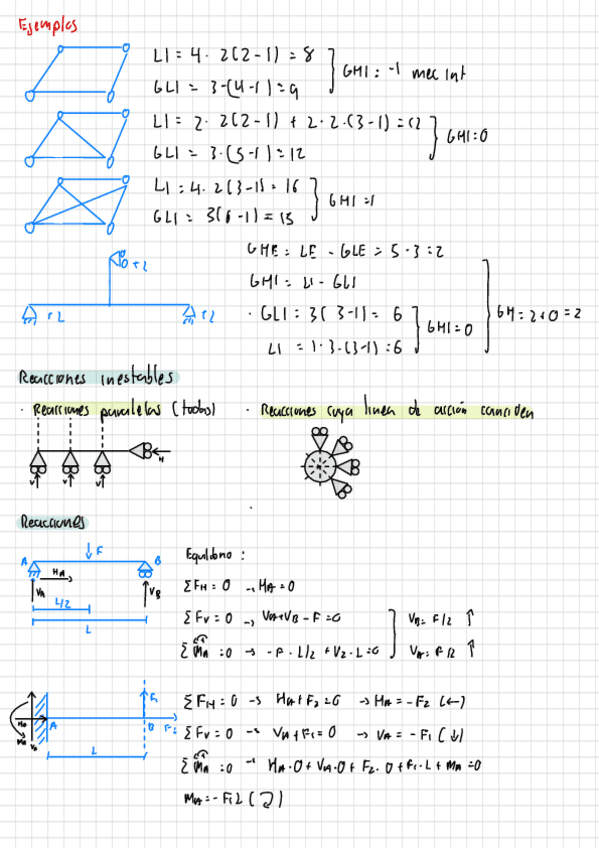 Ejemplos
LI = 4 · 2(2-1) = 8
GLI = 3·(4-1) = 9
GHI = -1 mec int
LI = 2 · 2(2-1) + 2·2·(3-1) = 12
GLI = 3·(5-1) = 12
GHI = 0
LI = 4·2(3-1) = 16
GLI = 3(6-1) = 15
GHI = 1
r2
r2
r2
GHE = LE - GLE = 5-3 = 2
GHI = LI - GLI
· GLI = 3(3-1) = 6
LI = 1·3·(3-1) = 6
GHI = 0
GH = 2+0 = 2
Reacciones inestables
· Reacciones paralelas (todas)
· Reacciones cuya linea de acción coinciden
V V V H
Reacciones
A F B
HA
VA
VB
L/2
L
Equilibrio :
ΣFH = 0 → HA = 0
ΣFV = 0 → VA+VB - F = 0
ΣMA = 0 → -F · L/2 + V2 · L = 0
VB = F/2 ↑
VA = F/2 ↑
HA
MA
VA
A
F1
B
F2
L
ΣFH = 0 → HA + F2 = 0 → HA = -F2 (←)
ΣFV = 0 → VA + F1 = 0 → VA = -F1 (↓)
ΣMA = 0 → HA·0 + VA·0 + F2·0 + F1·L + MA = 0
MA = -F1L (⤵)